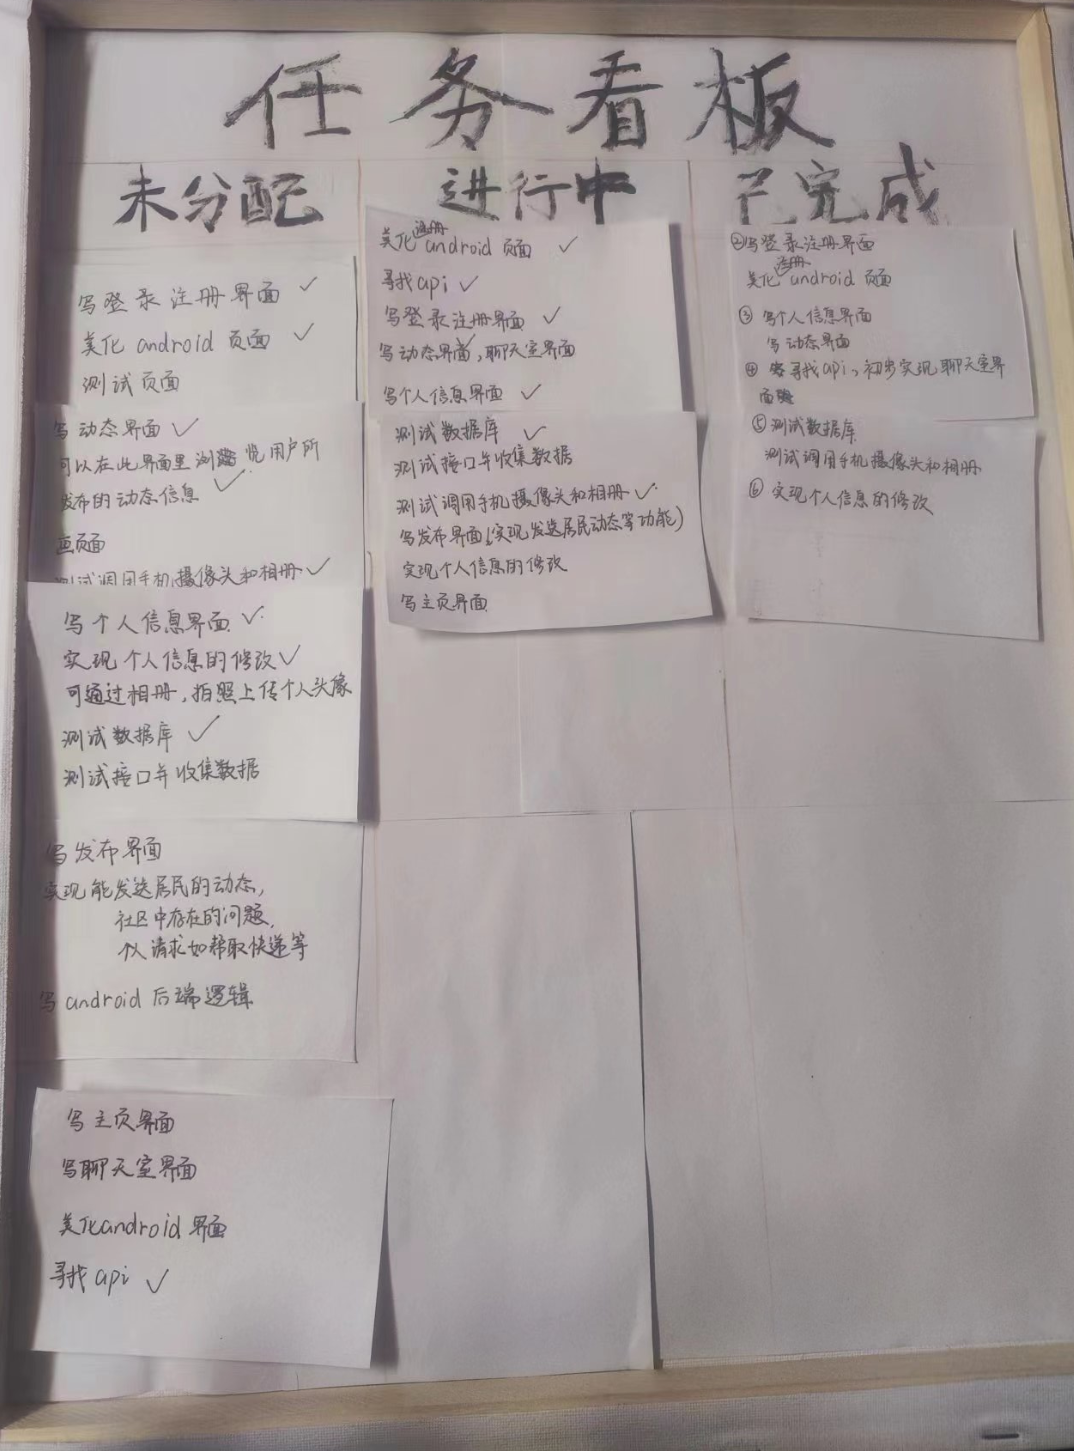 任务看板
未分配
写登录注册界面 ✓
美化 android 页面 ✓
测试页面
写动态界面 ✓
可以在此界面里浏览用户所
发布的动态信息 ✓
画页面
测试调用手机摄像头和相册 ✓
写个人信息界面 ✓
实现个人信息的修改 ✓
可通过相册,拍照上传个人头像
测试数据库 ✓
测试接口并收集数据
写发布界面
实现能发送居民的动态,
社区中存在的问题,
个人请求如帮取快递等
写 android 后端逻辑
写主页界面
写聊天室界面
美化android 界面
寻找 api ✓
进行中
美化注册android 页面 ✓
寻找api ✓
写登录注册界面 ✓
写动态界面,聊天室界面
写个人信息界面 ✓
测试数据库 ✓
测试接口并收集数据
测试调用手机摄像头和相册 ✓
写发布界面(实现发送居民动态等功能)
实现个人信息的修改
写主页界面
已完成
②写登录注册界面
美化注册android 页面
③ 写个人信息界面
写动态界面
④ 寻找api,初步实现聊天室界
面
⑤ 测试数据库
测试调用手机摄像头和相册
⑥ 实现个人信息的修改